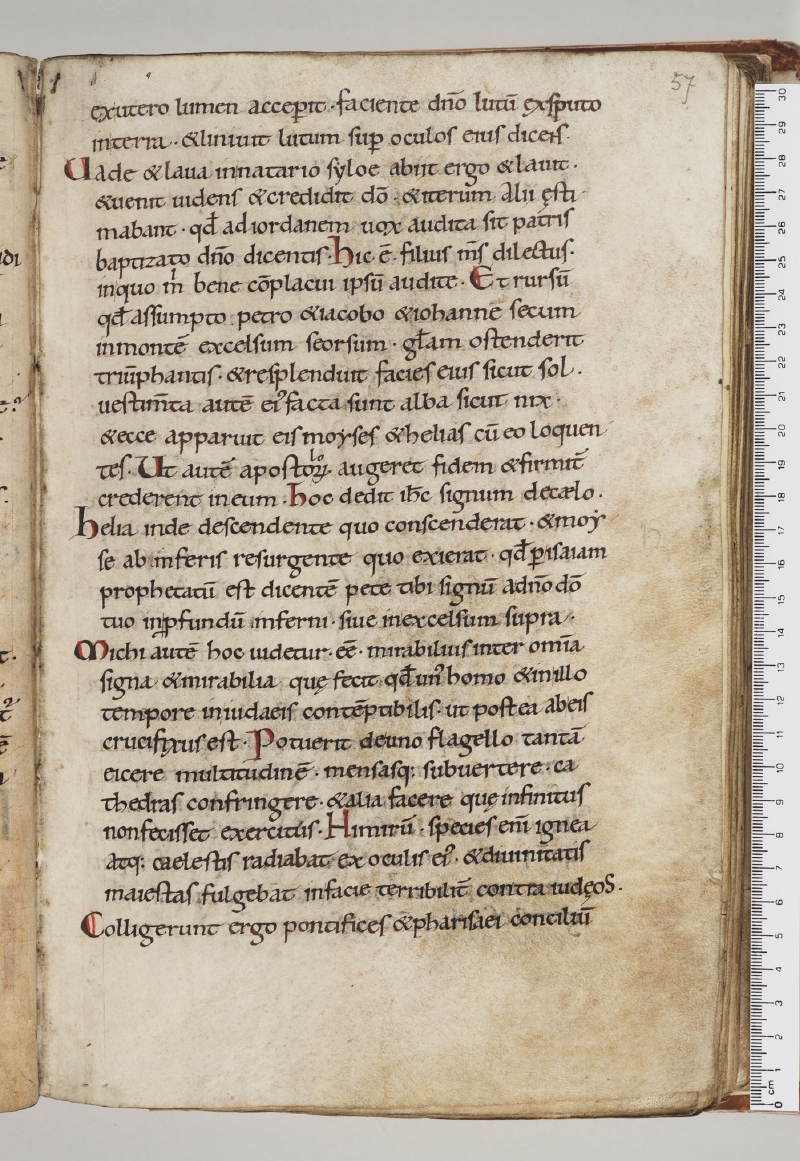 57
exutero lumen accepit · faciente dño lutū exsputo
interra · &liniuit lutum sup oculos eius dicens·
Uade &laua innatatorio syloe abiit ergo &lauit ·
&uenit uidens &credidit dō · &iterum Alii ęsti
mabant · qđ adiordanem uox audita sit patris
baptizato dño dicentis· hic · ē · filius m̄s dilectus·
inquo m̄ bene cōplacui ipsū audite · Et rursū
qđ assumpto petro &iacobo &iohanne secum
inmontē excelsum seorsum · gl̄am ostenderit
triūphantis · &resplenduit facies eius sicut sol ·
uestim̄ta autē ei᾽ facta sunt alba sicut nix ·
&ecce apparuit eis moyses &helias cū eo loquen
tes · Ut autē apostoloꝝ · augeret fidem &firmit̄
crederent ineum · hoc dedit ih̄c signum decælo ·
helia inde descendente quo conscenderat · &moy
se ab inferis resurgente quo exierat · qđ p isaiam
prophetatū est dicentē pete tibi signū adño dō
tuo inp̱fundū inferni · siue inexcelsum supra ·
Michi autē hoc uidetur · eē · mirabilius inter om̄ia
signa &mirabilia quę fecit qđ un᾽ homo &inillo
tempore iniudaeis contēptibilis · ut postea abeis
crucifixus est · Potuerit deuno flagello tantā
eicere multitudinē · mensasq: subuertere · ca
thedras confringere · &alia facere que infinitus
nonfecisset exercitus · Nimirū · species eni ignea
atq: caelestis radiabat ex oculis ei᾽ · &diuinitatis
maiestas fulgebat infacie terribilit̄ contra iudęos ·
Colligerunt ergo pontifices &pharisaei conciliū